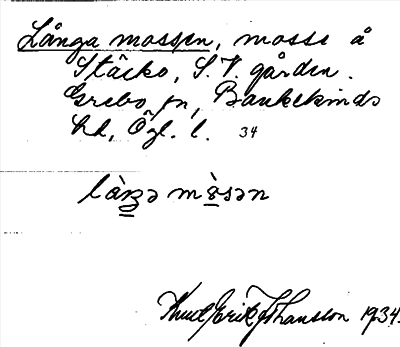 Långa mossen, mosse å
Stäcko, S. V. gården.
Grebo sn, Bankekinds
hd, Ögl. l. 34
Knut Erik Johansson 1934.